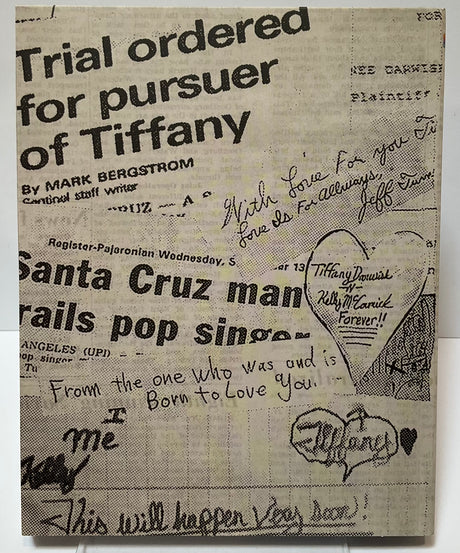 Trial ordered
for pursuer
of Tiffany
By MARK BERGSTROM
Sentinel staff writer
CRUZ — A
FOR
Plaintiff
With Love For you
Love Is For Allways,
Jeff
Register-Pajaronian Wednesday, S
er 13
Santa Cruz man
rails pop singer
ANGELES (UPI)
pop singer
Tu
Tiffany Darwish
-N-
Kelly McCormick
Forever!!
From the one who was and is
Born to Love You.
I
me
Kelly
Tiffany
This will happen Very soon!